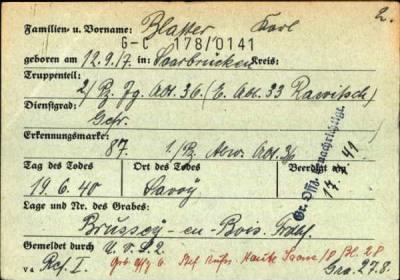 2.
Familien- u. Vorname: Blatter Karl
G-C 178/0141
geboren am 12.9.17 in: Saarbrücken Kreis:
Truppenteil:
2/ Pz. Jg. Abt. 36. (E. Abt. 33 Rawitsch)
Dienstgrad:
Gefr.
Erkennungsmarke:
87. 1./Pz. Abw. Abt. 36
Tag des Todes Ort des Todes Beerdigt am
19.6.40 Savoy 41
Lage und Nr. des Grabes:
Brussey-en-Bois.
Gemeldet durch
va Ref. I. Haute Saone /8 Bl. 28
Gra. 27.8.